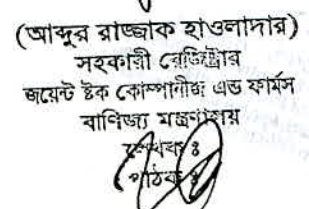 (আব্দুর রাজ্জাক হাওলাদার)
সহকারী রেজিষ্ট্রার
জয়েন্ট ষ্টক কোম্পানীজ এন্ড ফার্মস
বাণিজ্য মন্ত্রণালয়
লেখকঃ
পাঠকঃ